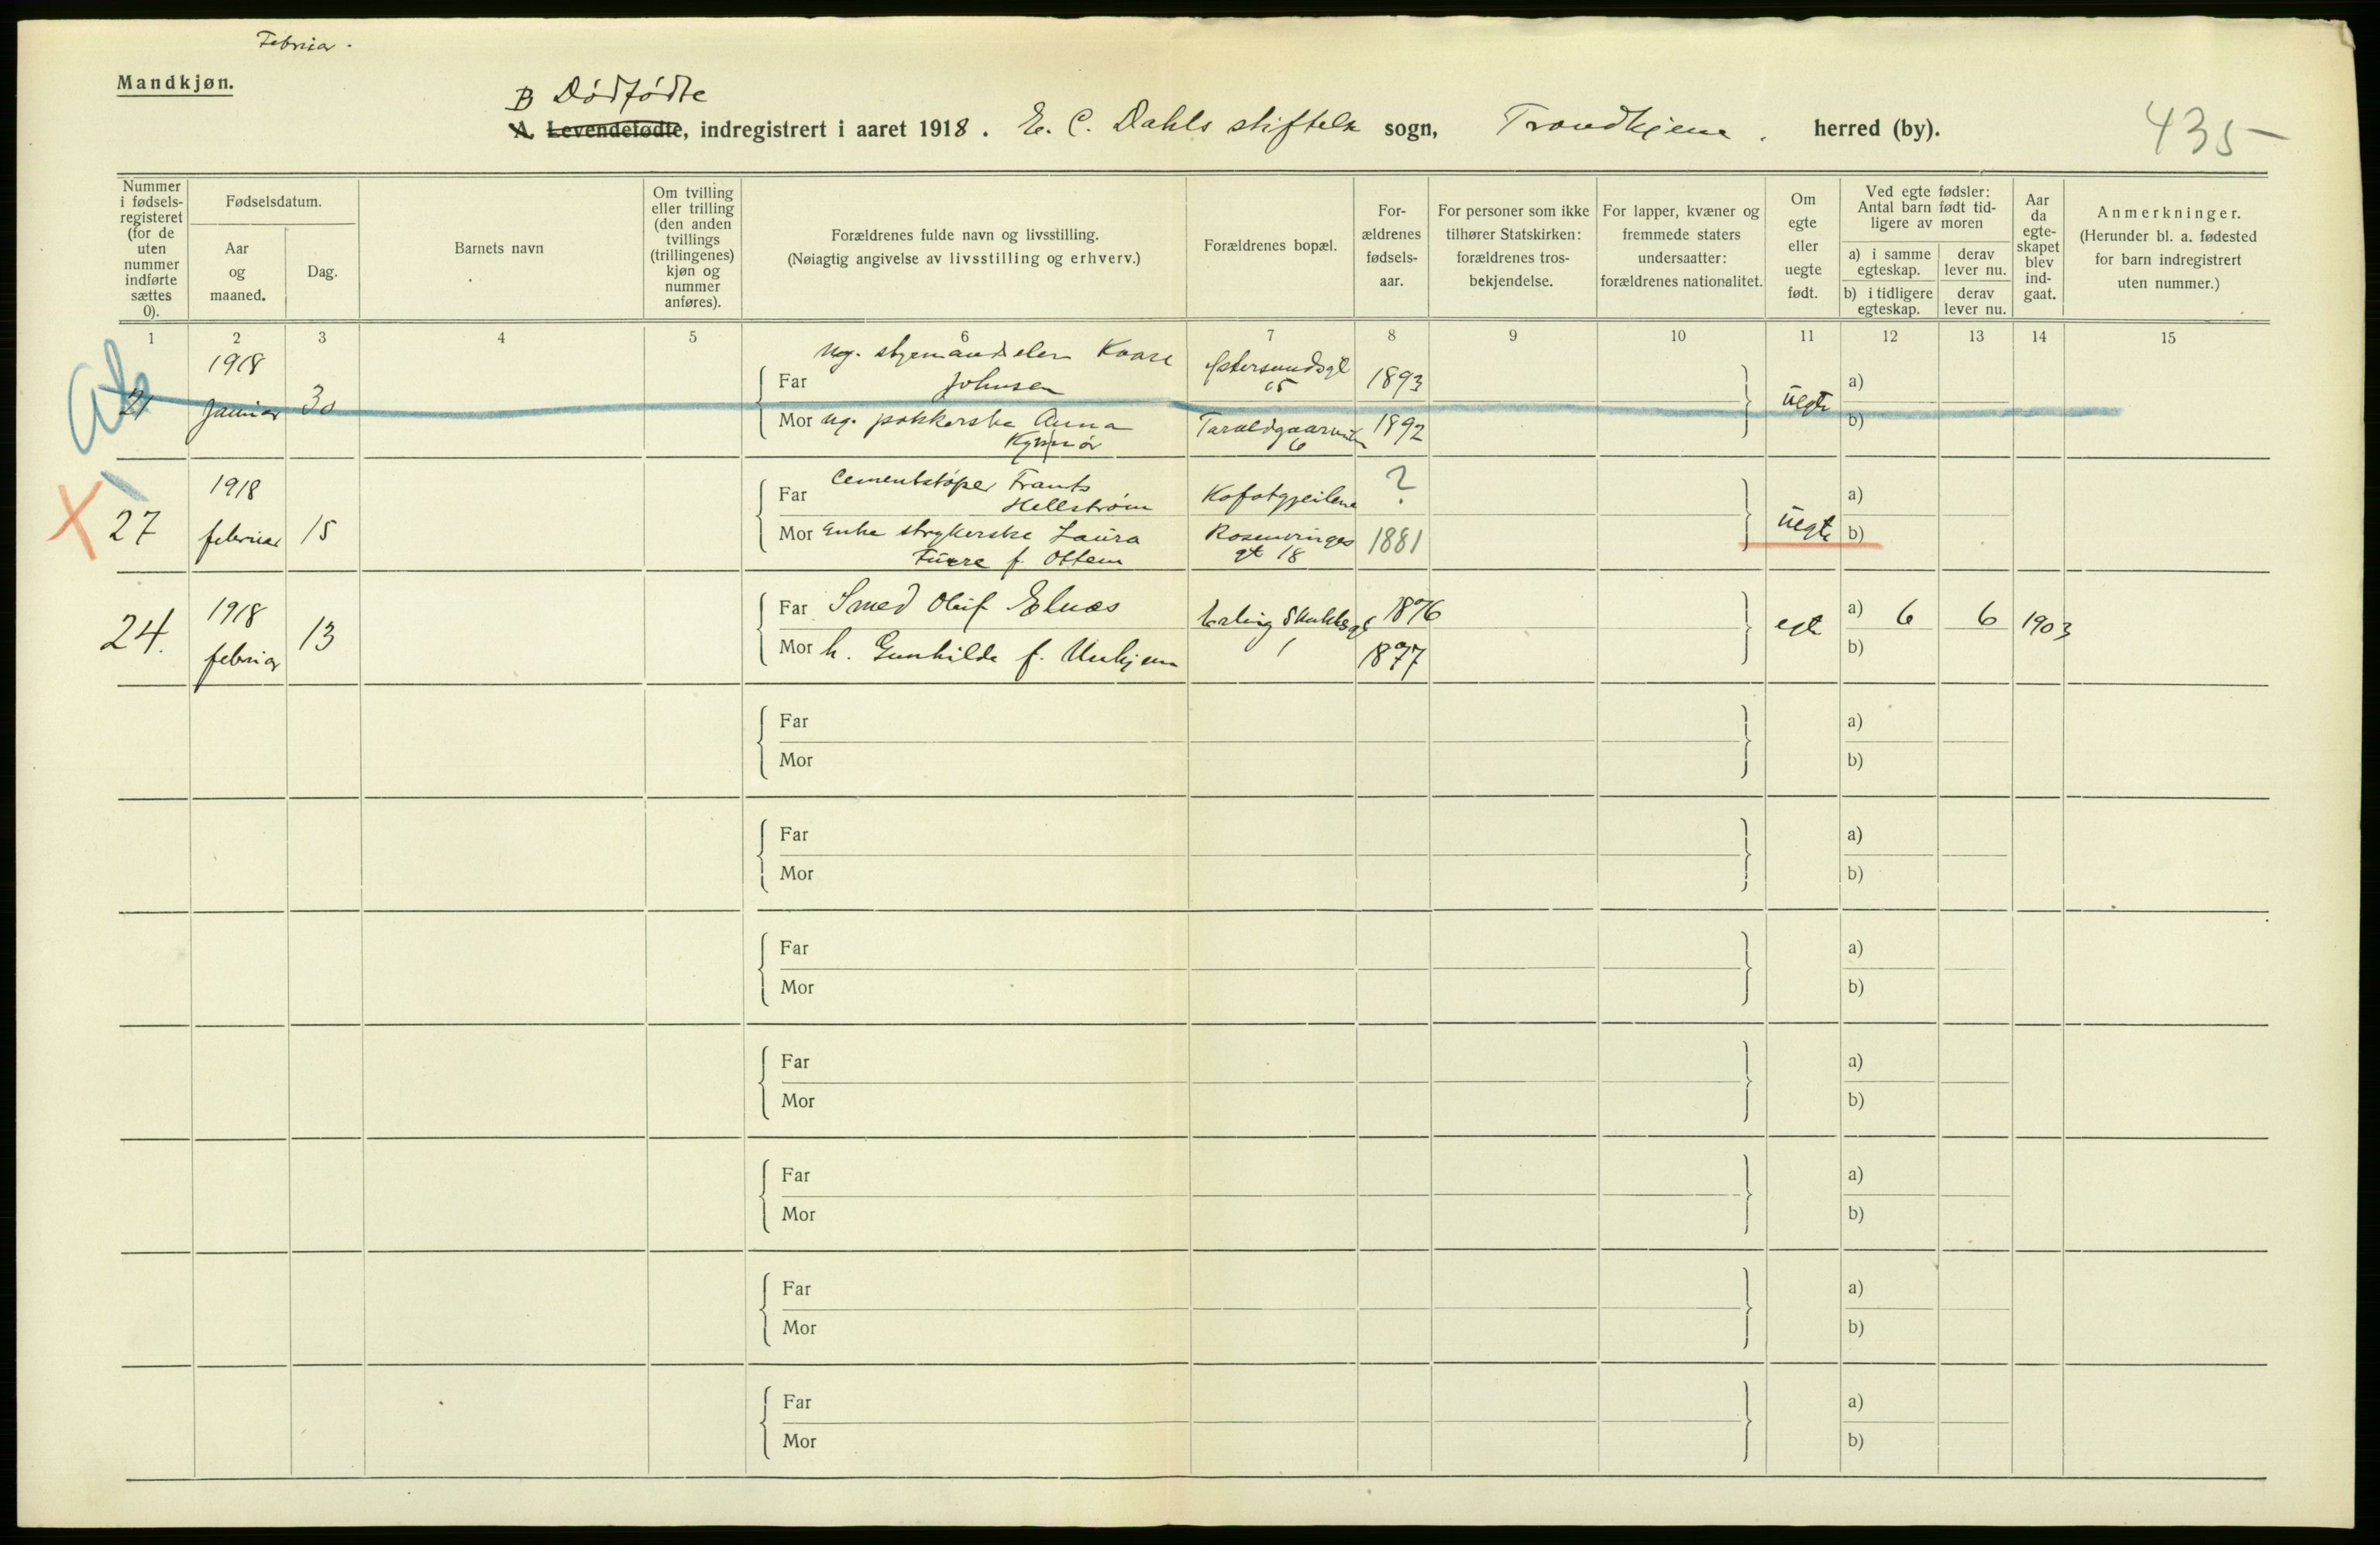 Februar.
Mandkjøn.
B Dødfødte
A. Levendefødte, indregistrert i aaret 1918. E. C. Dahls stiftelse sogn, Trondhjem. herred (by).
435
Nummer i fødsels-registeret (for de uten nummer indførte sættes 0).
Fødselsdatum.
Aar og maaned.
Dag.
Barnets navn
Om tvilling eller trilling (den anden tvillings (trillingenes) kjøn og nummer anføres).
Forældrenes fulde navn og livsstilling.
(Nøiagtig angivelse av livsstilling og erhverv.)
Forældrenes bopæl.
For-ældrenes fødsels-aar.
For personer som ikke tilhører Statskirken: forældrenes tros-bekjendelse.
For lapper, kvæner og fremmede staters undersaatter: forældrenes nationalitet.
Om egte eller uegte født.
Ved egte fødsler: Antal barn født tid-ligere av moren
a) i samme egteskap.
derav lever nu.
b) i tidligere egteskap.
derav lever nu.
Aar da egte-skapet blev ind-gaat.
Anmerkninger.
(Herunder bl. a. fødested for barn indregistrert uten nummer.)
1 2 3 4 5 6 7 8 9 10 11 12 13 14 15
21 1918 Januar 30
Far Ug. styrmandselev Kaare Johnsen Østersundsgt 15 1893
Mor Ug. pakkerske Anna 1892
uegte
a)
b)
27 1918 februar 15
Far Cementstøper Frants Hellström ?
Mor Enke strykerske Laura f. Ottem Rosenvinges gt 18 1881
uegte
a)
b)
24. 1918 februar 13
Far Smed Oluf Elnæs Erling Skakkes gt 1 1876
Mor h. Gunhilde f. 1877
egte
a) 6 6 1903
b)
Far a)
Mor b)
Far a)
Mor b)
Far a)
Mor b)
Far a)
Mor b)
Far a)
Mor b)
Far a)
Mor b)
Far a)
Mor b)